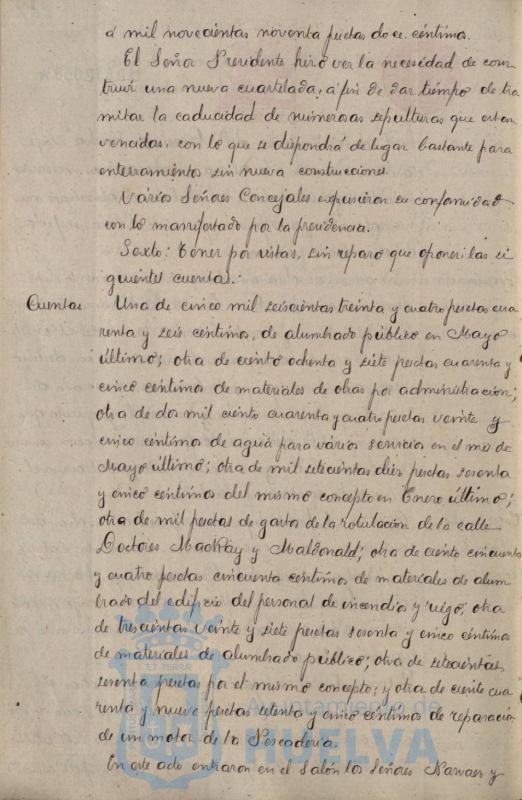 á mil novecientas noventa pesetas doce céntimos.
El Señor Presidente hizo ver la necesidad de cons
truir una nueva cuartelada, a fin de dar tiempo de tra
mitar la caducidad de numerosas sepulturas que estan
vencidas, con lo que se dispondrá de lugar bastante para
enterramientos sin nueva construcciones.
Varios Señores Concejales expusieron su conformidad
con lo manifestado por la presidencia.
Sexto: Tener por vistas, sin reparo que oponer, las si
guientes cuentas.
Cuentas
Una de cinco mil seiscientas treinta y cuatro pesetas cua
renta y seis céntimos, de alumbrado público en Mayo
último; otra de ciento ochenta y siete pesetas cuarenta y
cinco céntimos de materiales de obras por administración;
otra de dos mil ciento cuarenta y cuatro pesetas veinte y
cinco céntimos de agua para varios servicios en el mes de
Mayo último; otra de mil setecientas diez pesetas sesenta
y cinco céntimos del mismo concepto en Enero último;
otra de mil pesetas de gastos de la rotulación de la calle
Doctores Mackay y Maldonald; otra de ciento cincuenta
y cuatro pesetas cincuenta céntimos de materiales de alum
brado del edificio del personal de incendio y riego; otra
de trescientas veinte y siete pesetas sesenta y cinco céntimos
de materiales de alumbrado público; otra de setecientas
sesenta pesetas por el mismo concepto; y otra de ciento cua
renta y nueve pesetas setenta y cinco céntimos de reparación
de un motor de la Pescadería.
En este acto entraron en el Salón los Señores Narvaez y
ET TERRAE
Ayuntamiento de
HUELVA